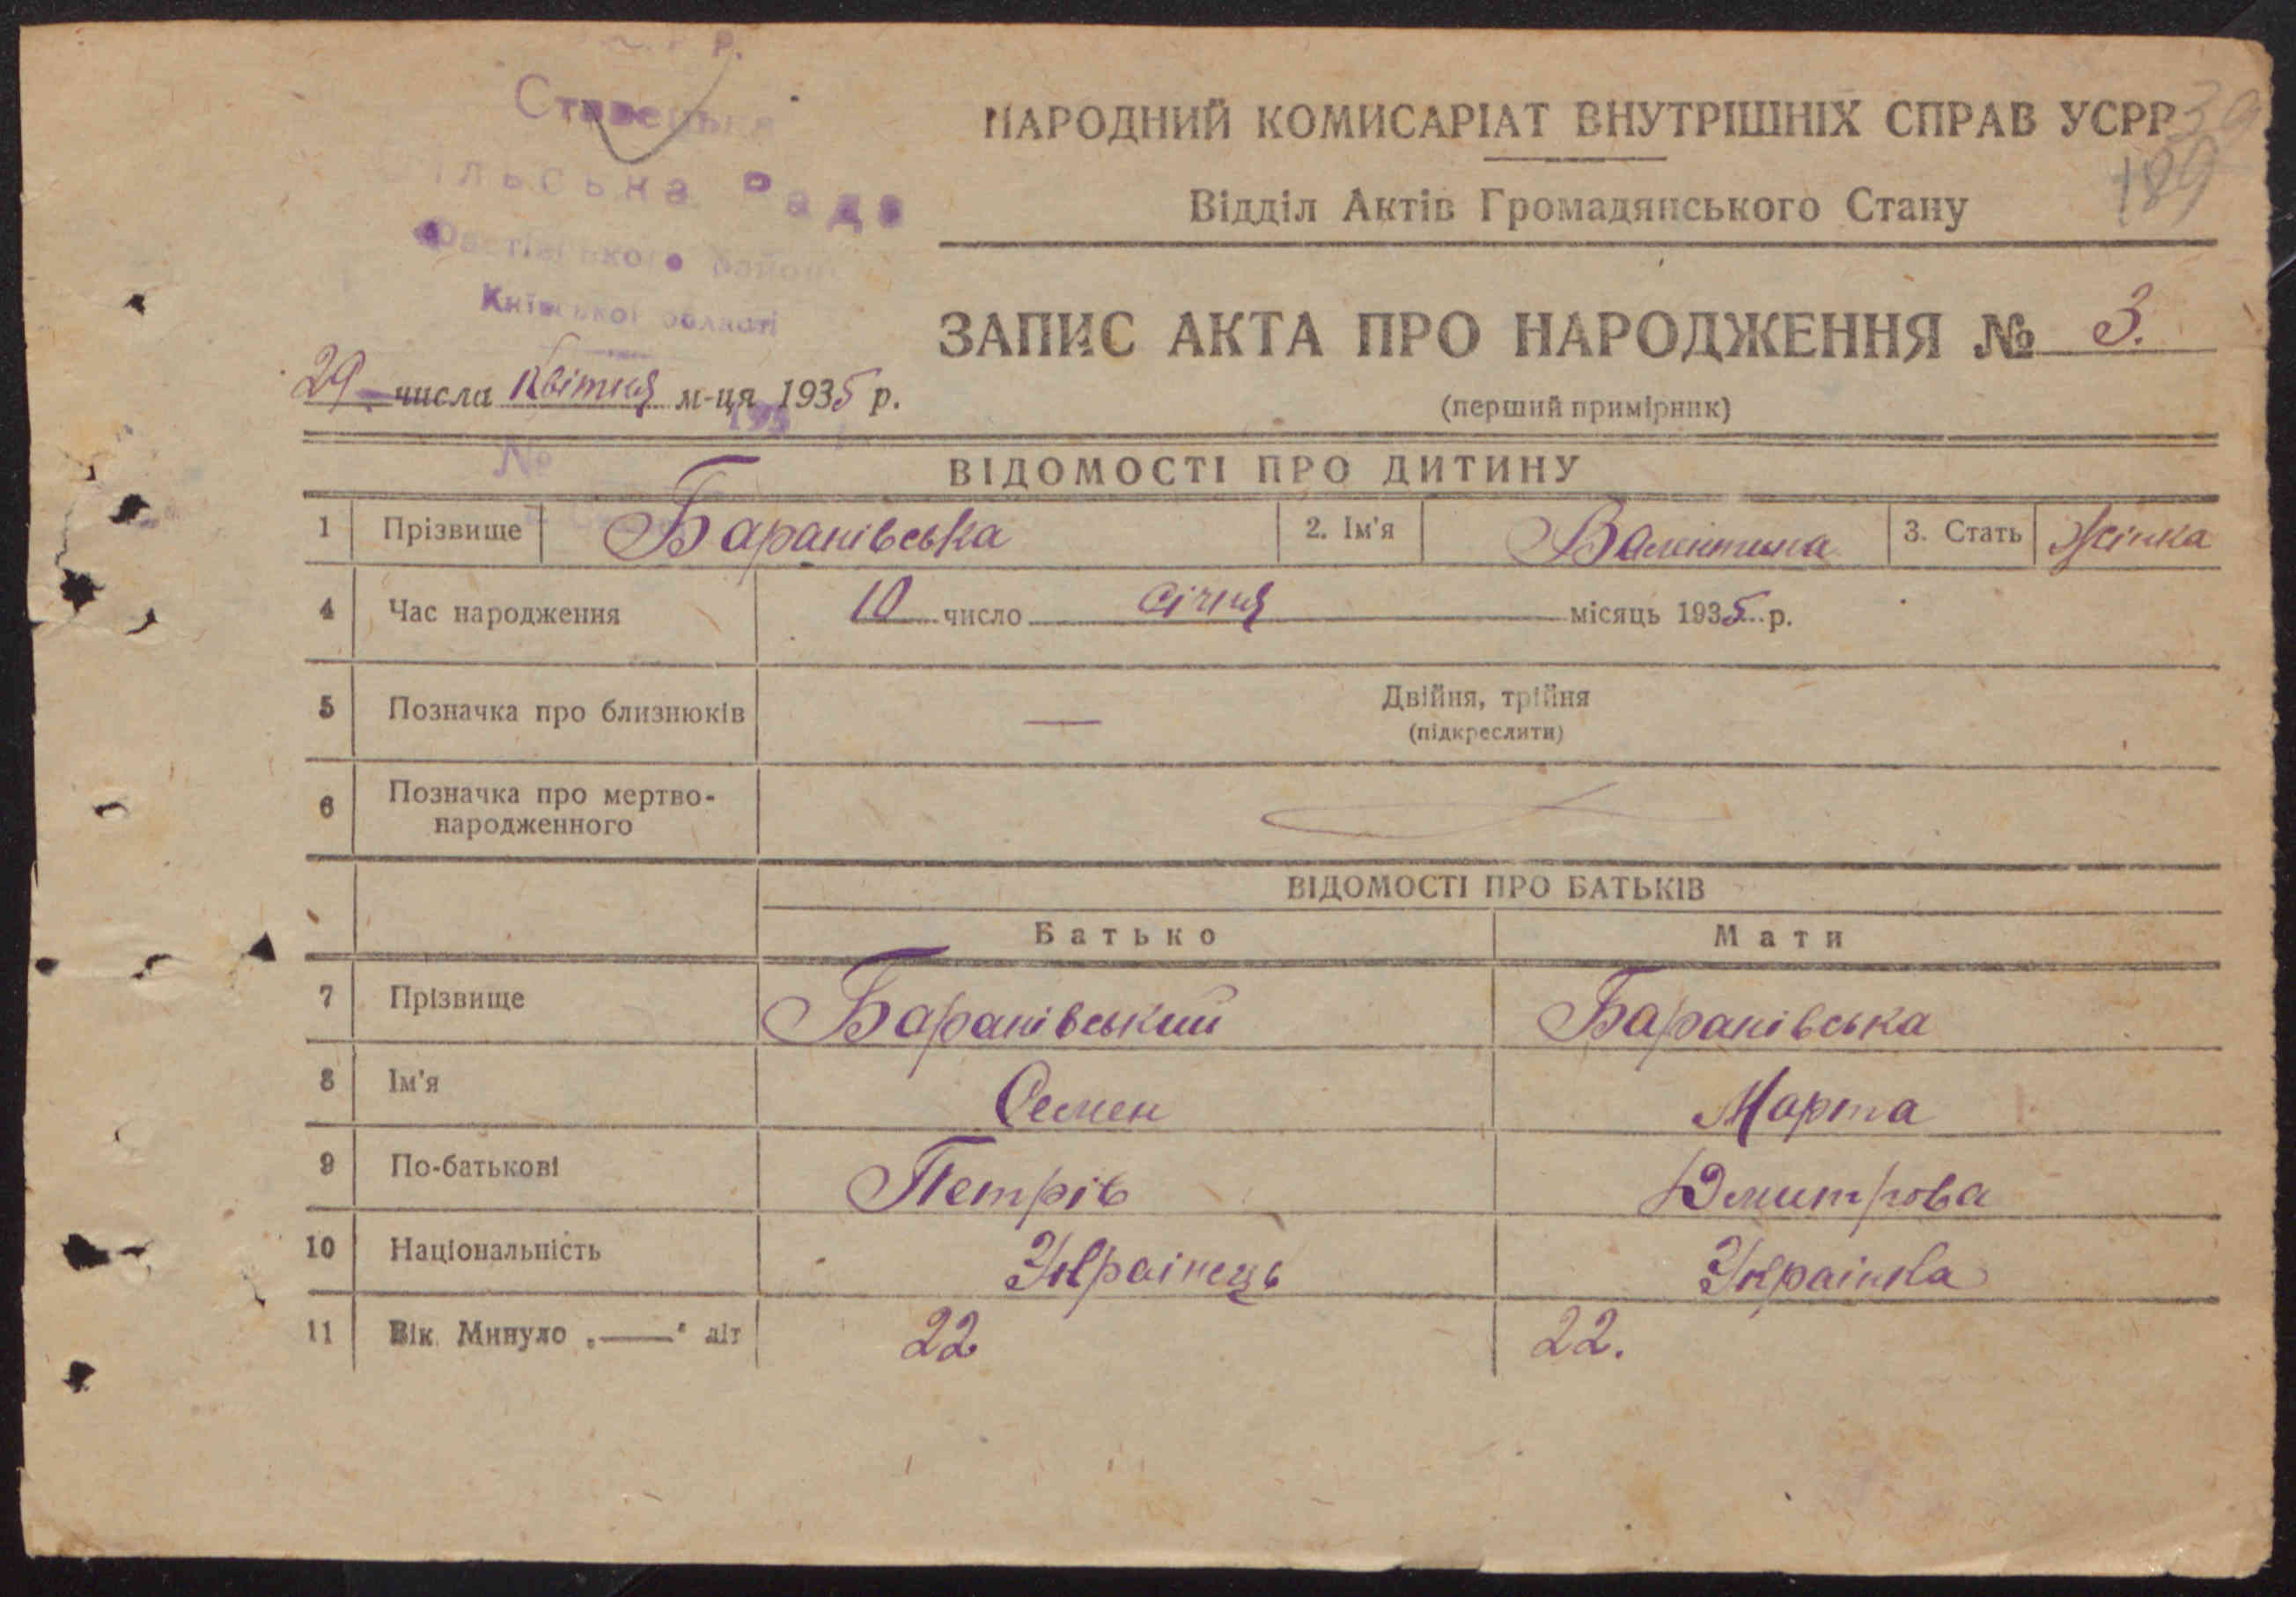 Ставецька
Сільська Рада
Фастівського району
Київської області
39
189
НАРОДНИЙ КОМИСАРІАТ ВНУТРІШНІХ СПРАВ УСРР
Відділ Актів Громадянського Стану
ЗАПИС АКТА ПРО НАРОДЖЕННЯ № 3.
(перший примірник)
29 числа Квітня м-ця 1935 р.
193
№
ВІДОМОСТІ ПРО ДИТИНУ
1 Прізвище Баранівська 2. Ім'я Валентина 3. Стать Жінка
4 Час народження 10 число січня місяць 1935 р.
5 Позначка про близнюків — Двійня, трійня
(підкреслити)
6 Позначка про мертво-
народженного
ВІДОМОСТІ ПРО БАТЬКІВ
Батько Мати
7 Прізвище Баранівський Баранівська
8 Ім'я Семен Марта
9 По-батькові Петрів Дмитрова
10 Національність Українець Українка
11 Вік Минуло „—“ літ 22 22.